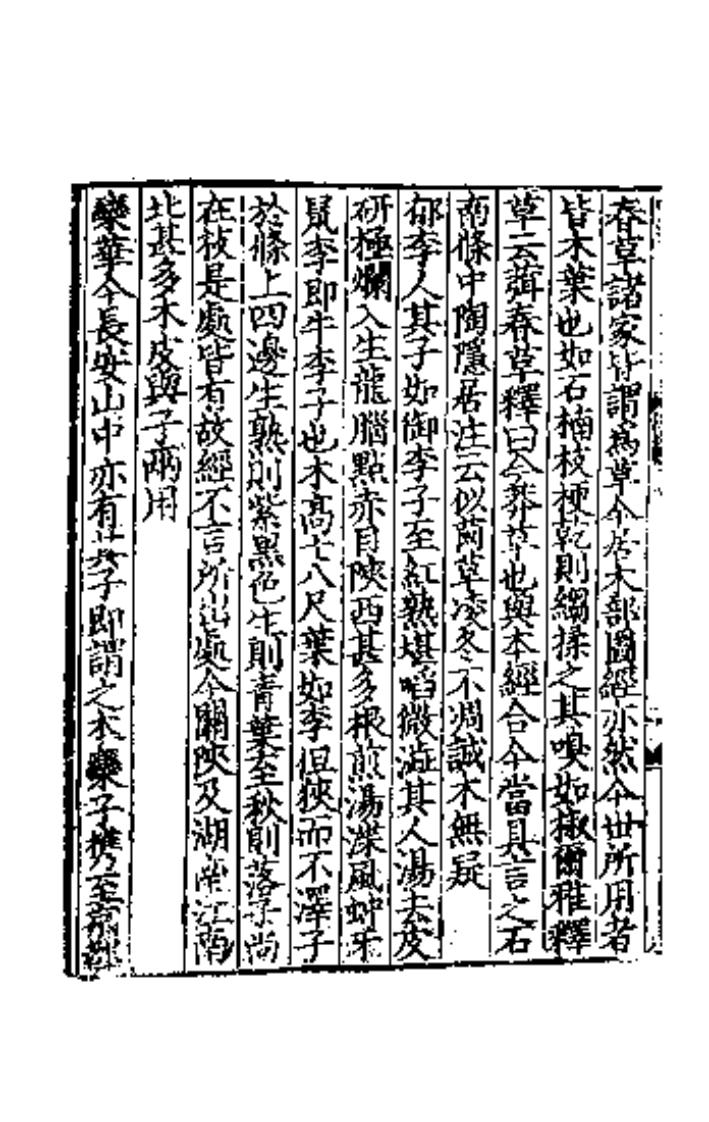 春草諸家皆謂爲草今居木部圖經亦然今世所用者
皆木葉也如石楠枝梗乾則縐揉之其嗅如椒爾雅釋
草云葞春草釋曰今莽草也與本經合今當具言之石
南條中陶隱居注云似茵草凌冬不凋誠木無疑
郁李人其子如御李子至紅熟堪啗微澁其人湯去皮
研極爛入生龍腦點赤目陝西甚多根煎湯渫風蚛牙
鼠李即牛李子也木高七八尺葉如李但狹而不澤子
於條上四邊生熟則紫黑色生則青葉至秋則落子尚
在枝是處皆有故經不言所出處今關陝及湖南江南
北甚多木皮與子兩用
欒華今長安山中亦有其子即謂之木欒子携至京都